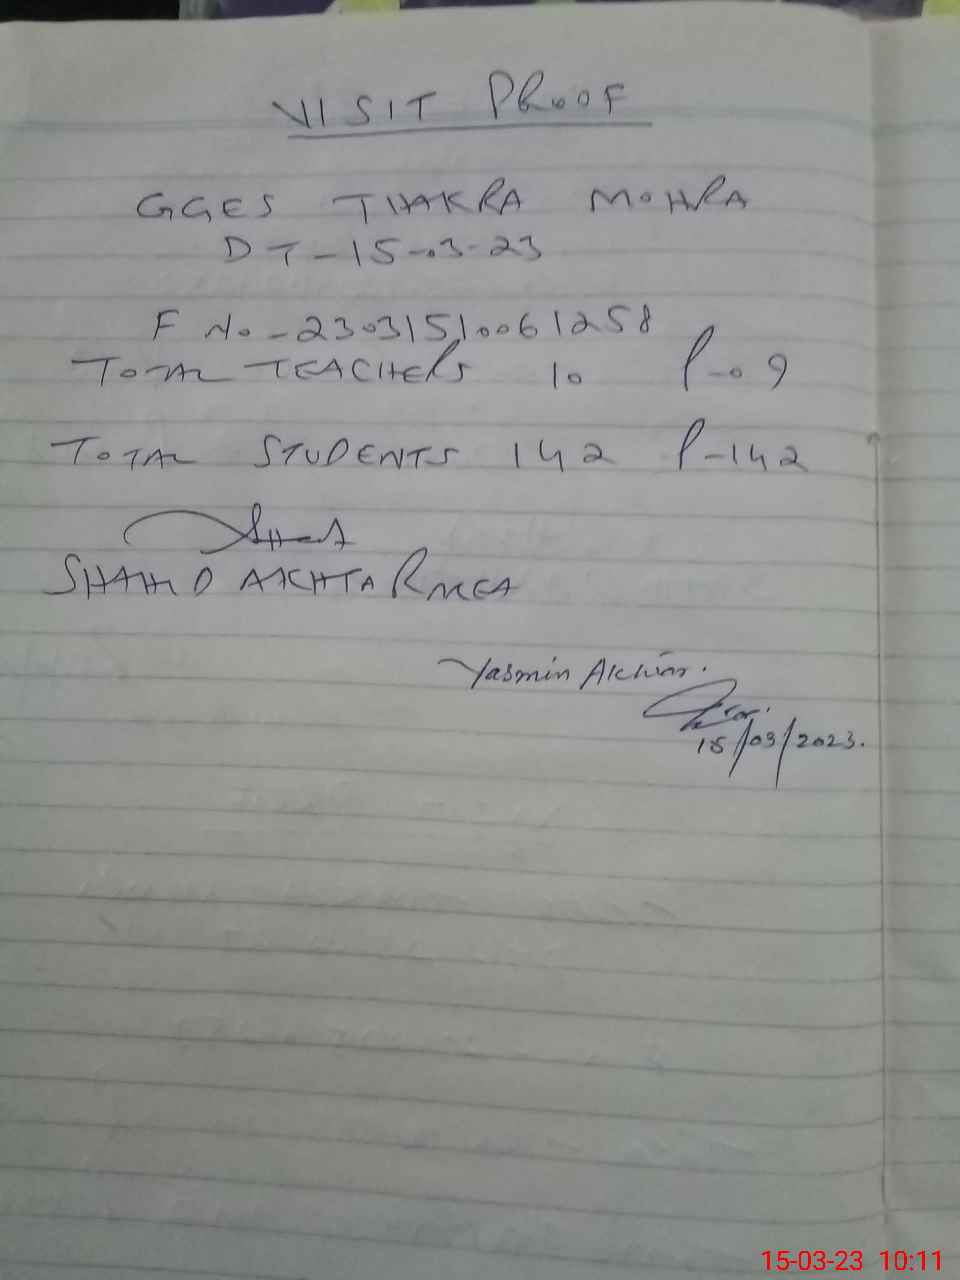 VISIT PROOF
GGES THAKRA MOHRA
DT-15-03-23
F No-23031510061258
TOTAL TEACHERS 10 P-09
TOTAL STUDENTS 142 P-142
SHAHID AKHTAR MEA
Yasmin Akhtar.
15/03/2023.
15-03-23 10:11